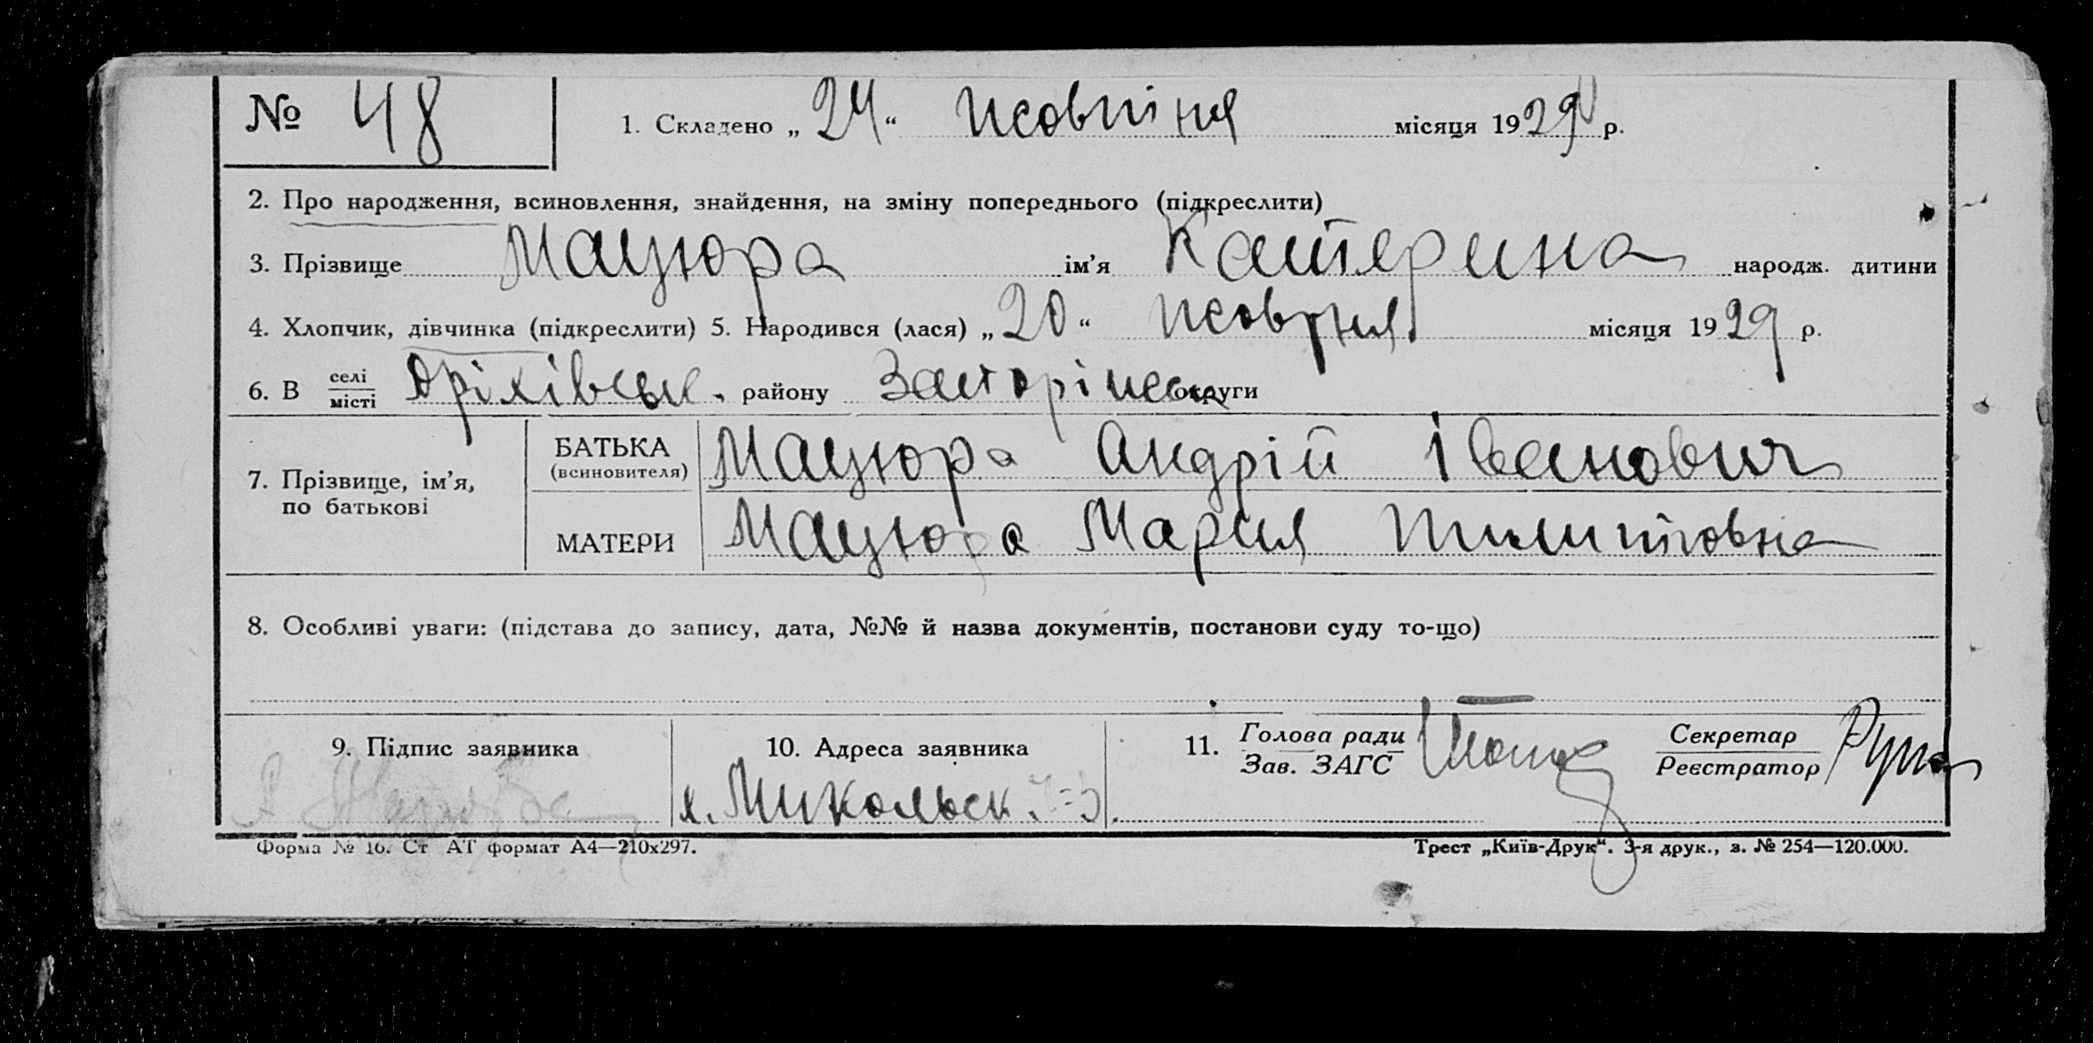 № 48 1. Складено „24“ жовтня місяця 1929 р.
2. Про народження, всиновлення, знайдення, на зміну попереднього (підкреслити)
3. Прізвище Мацюра ім’я Катерина народж. дитини
4. Хлопчик, дівчинка (підкреслити) 5. Народився (лася) „20“ жовтня місяця 1929 р.
6. В селі місті Оріхівськ. району Запоріжськ округи
7. Прізвище, ім’я, по батькові
БАТЬКА (всиновителя) Мацюра Андрій Іванович
МАТЕРИ Мацюра Мария Пилиповна
8. Особливі уваги: (підстава до запису, дата, №№ й назва документів, постанови суду то-що)
9. Підпис заявника 10. Адреса заявника 11. Голова ради Зав. ЗАГС Секретар Реєстратор
х. Микольск.
Форма № 16. Ст АТ формат А4—210х297. Трест „Київ-Друк“. 3-я друк., з. № 254—120.000.